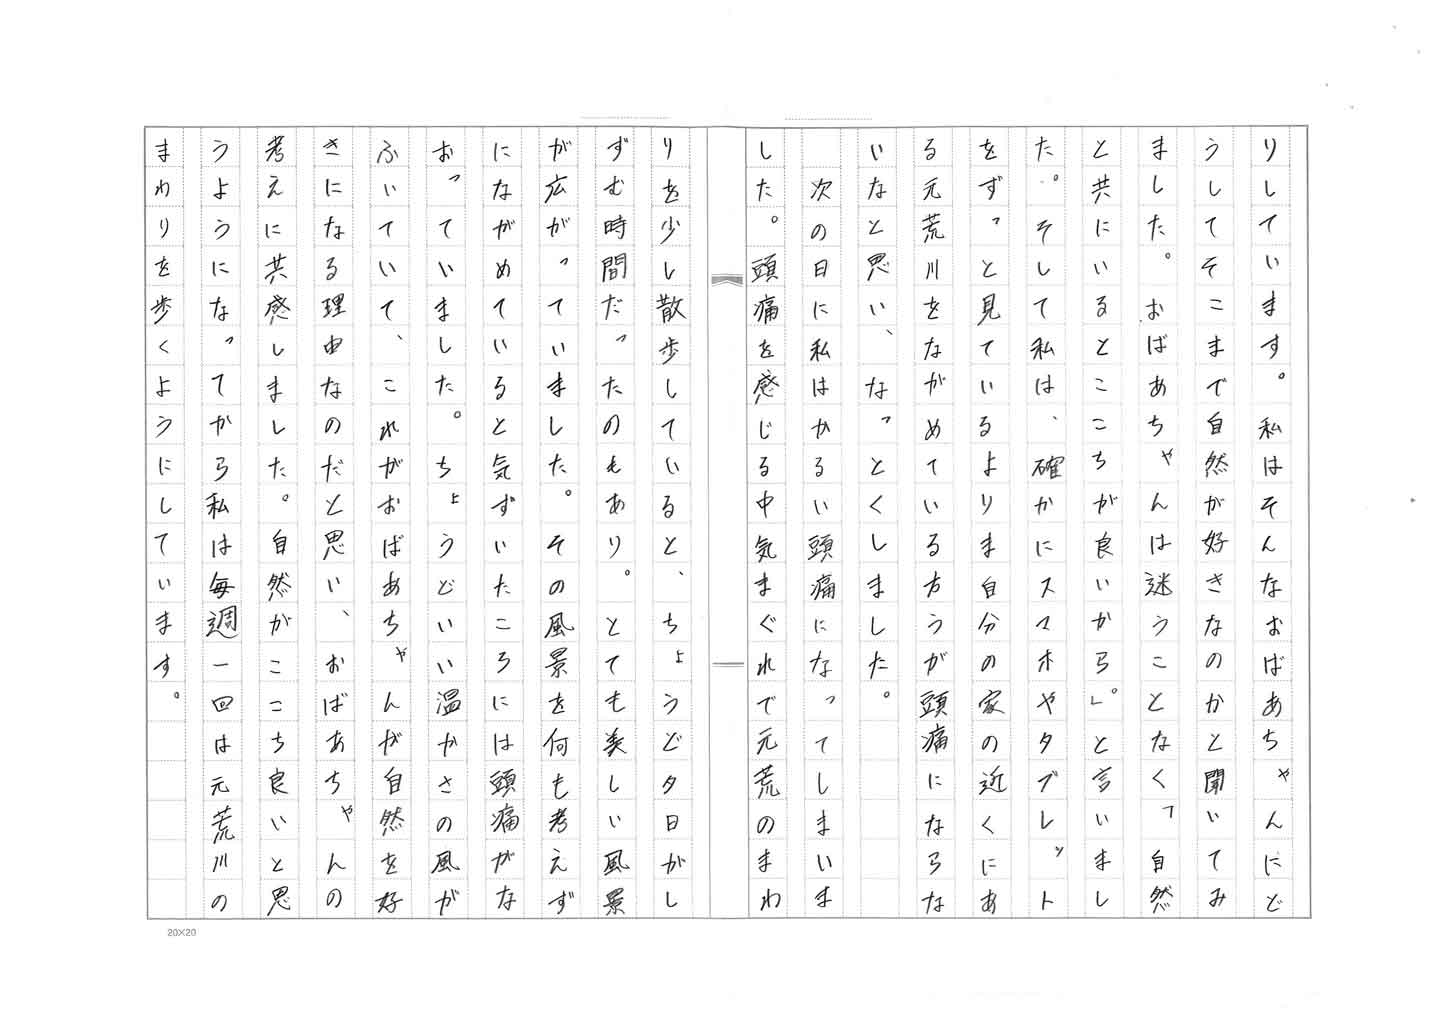 りしています。私はそんなおばあちゃんにど
うしてそこまで自然が好きなのかと聞いてみ
ました。おばあちゃんは迷うことなく「自然
と共にいるとここちが良いから。」と言いまし
た。そして私は、確かにスマホやタブレット
をずっと見ているよりま自分の家の近くにあ
る元荒川をながめている方うが頭痛にならな
いなと思い、なっとくしました。
次の日に私はかるい頭痛になってしまいま
した。頭痛を感じる中気まぐれで元荒のまわ
りを少し散歩していると、ちょうど夕日がし
ずむ時間だったのもあり。とても美しい風景
が広がっていました。その風景を何も考えず
にながめていると気ずいたころには頭痛がな
おっていました。ちょうどいい温かさの風が
ふいていて、これがおばあちゃんが自然を好
きになる理由なのだと思い、おばあちゃんの
考えに共感しました。自然がここち良いと思
うようになってから私は毎週一回は元荒川の
まわりを歩くようにしています。
20×20